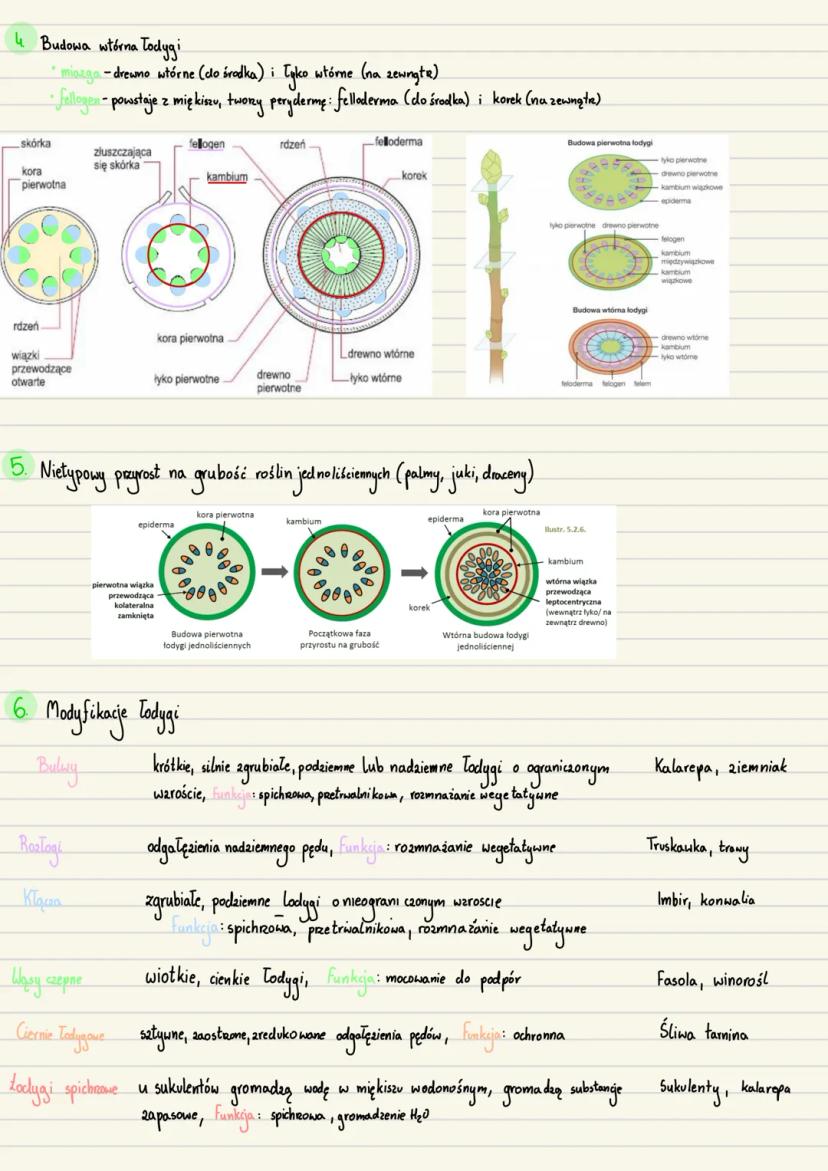 4. Budowa wtórna łodygi
• miazga - drewno wtórne (do środka) i łyko wtórne (na zewnątrz)
• fellogen - powstaje z miękiszu, tworzy perydermę: felloderma (do środka) i korek (na zewnątrz)
skórka
kora
pierwotna
rdzeń
wiązki
przewodzące
otwarte
złuszczająca
się skórka
fellogen
kambium
rdzeń
felloderma
korek
kora pierwotna
łyko pierwotne
drewno
pierwotne
drewno wtórne
łyko wtórne
Budowa pierwotna łodygi
łyko pierwotne
drewno pierwotne
kambium wiązkowe
epiderma
łyko pierwotne drewno pierwotne
felogen
kambium
międzywiązkowe
kambium
wiązkowe
Budowa wtórna łodygi
drewno wtórne
kambium
łyko wtórne
feloderma felogen felem
5. Nietypowy przyrost na grubość roślin jednoliściennych (palmy, juki, draceny)
epiderma
kora pierwotna
pierwotna wiązka
przewodząca
kolateralna
zamknięta
Budowa pierwotna
łodygi jednoliściennych
kambium
Początkowa faza
przyrostu na grubość
epiderma
kora pierwotna
Ilustr. 5.2.6.
kambium
wtórna wiązka
przewodząca
leptocentryczna
(wewnątrz łyko/ na
zewnątrz drewno)
korek
Wtórna budowa łodygi
jednoliściennej
6. Modyfikacje łodygi
Bulwy krótkie, silnie zgrubiałe, podziemne lub nadziemne łodygi o ograniczonym Kalarepa, ziemniak
wzroście, Funkcja: spichrzowa, przetrwalnikowa, rozmnażanie wegetatywne
Rozłogi odgałęzienia nadziemnego pędu, Funkcja: rozmnażanie wegetatywne Truskawka, trawy
Kłącza zgrubiałe, podziemne łodygi o nieograniczonym wzroscie Imbir, konwalia
Funkcja: spichrzowa, przetrwalnikowa, rozmnażanie wegetatywne
Wąsy czepne wiotkie, cienkie łodygi, Funkcja: mocowanie do podpór Fasola, winorośl
Ciernie łodygowe sztywne, zaostrzone, zredukowane odgałęzienia pędów, Funkcja: ochronna Śliwa tarnina
Łodygi spichrzowe u sukulentów gromadzą wodę w miękiszu wodonośnym, gromadzą substancje Sukulenty, kalarepa
zapasowe, Funkcja: spichrzowa, gromadzenie H₂O